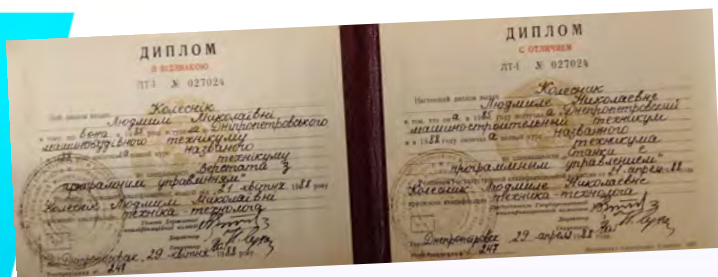 ДИПЛОМ
З ВІДЗНАКОЮ
ЛТ-I № 027024
Цей диплом видано Колеснік
Людмилі Миколаївні
в тому, що вона в 19 році
Дніпропетровського
машинобудівного технікуму
в 1988 повний курс названого
технікуму
Верстата з
програмним управлінням"
21 квітня 1988 року
Колеснік Людмилі Миколаївні
техніка-технолога
Голова Державної
кваліфікаційної комісії
Директор
Секретар
Дніпропетровськ, 29 квітня 1988 року
247
ДИПЛОМ
С ОТЛИЧИЕМ
ЛТ-I № 027024
Настоящий диплом выдан Колесник
Людмиле Николаевне
в том, что он а в 19 году поступил а в Днепропетровский
машиностроительный техникум
и в 1988 году окончил а полный курс названного
техникума
Станки с
программным управлением"
от 21 апреля 88
Колесник Людмиле Николаевне
техника-технолога
Председатель Государственной
Директор
Секретарь
Днепропетровск 29 апреля 1988
247